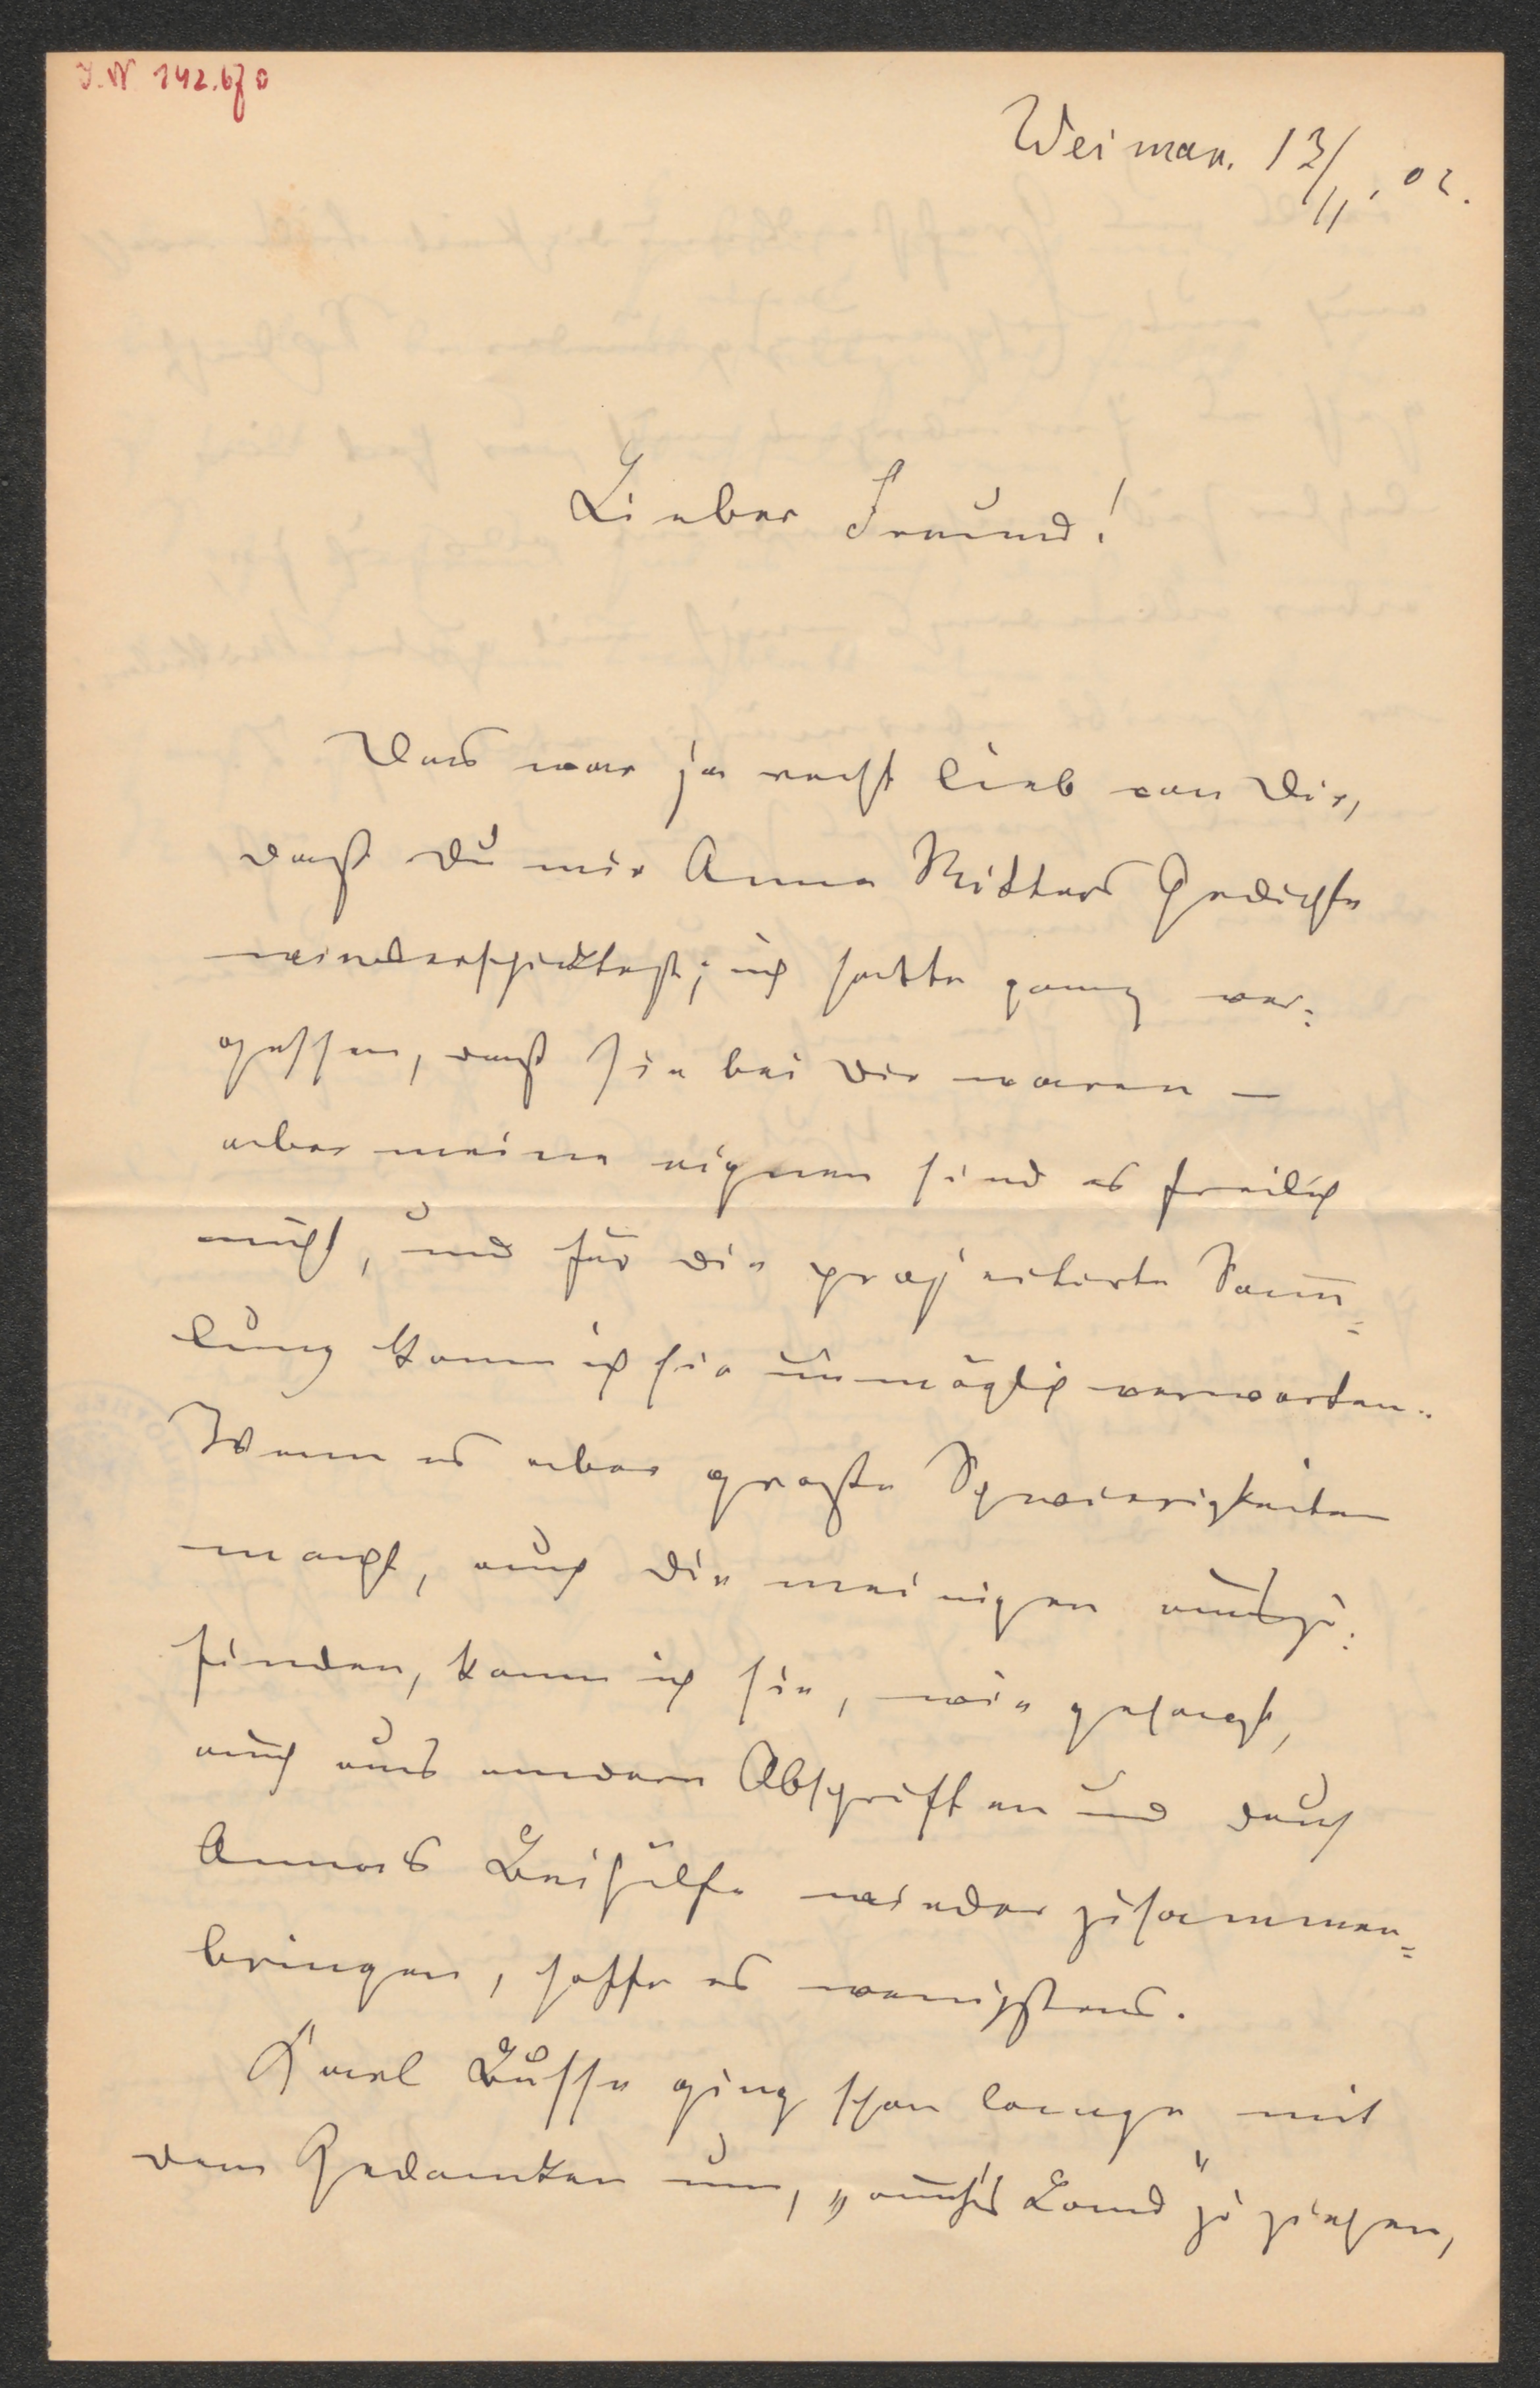 J. N 142.670
Weimar. 13/11. 02.
Lieber Freund!
Das war ja recht lieb von Dir,
daß Du mir Anna Ritters Gedichte
wiederschicktest; ich hatte ganz ver=
gessen, daß sie bei Dir waren —
aber meine eignen sind es freilich
nicht, und für die projectirte Sam̄=
lung kann ich sie unmöglich verwerten.
Wenn es aber große Schwierigkeiten
macht, auch die meinigen aufzu=
finden, kann ich sie, wie gesagt,
auch aus andern Abschriften und durch
Annas Beihülfe wieder zusammen=
bringen, hoffe es wenigstens.
Karl Busse ging schon lange mit
dem Gedanken um, „aufs Land" zu ziehen,